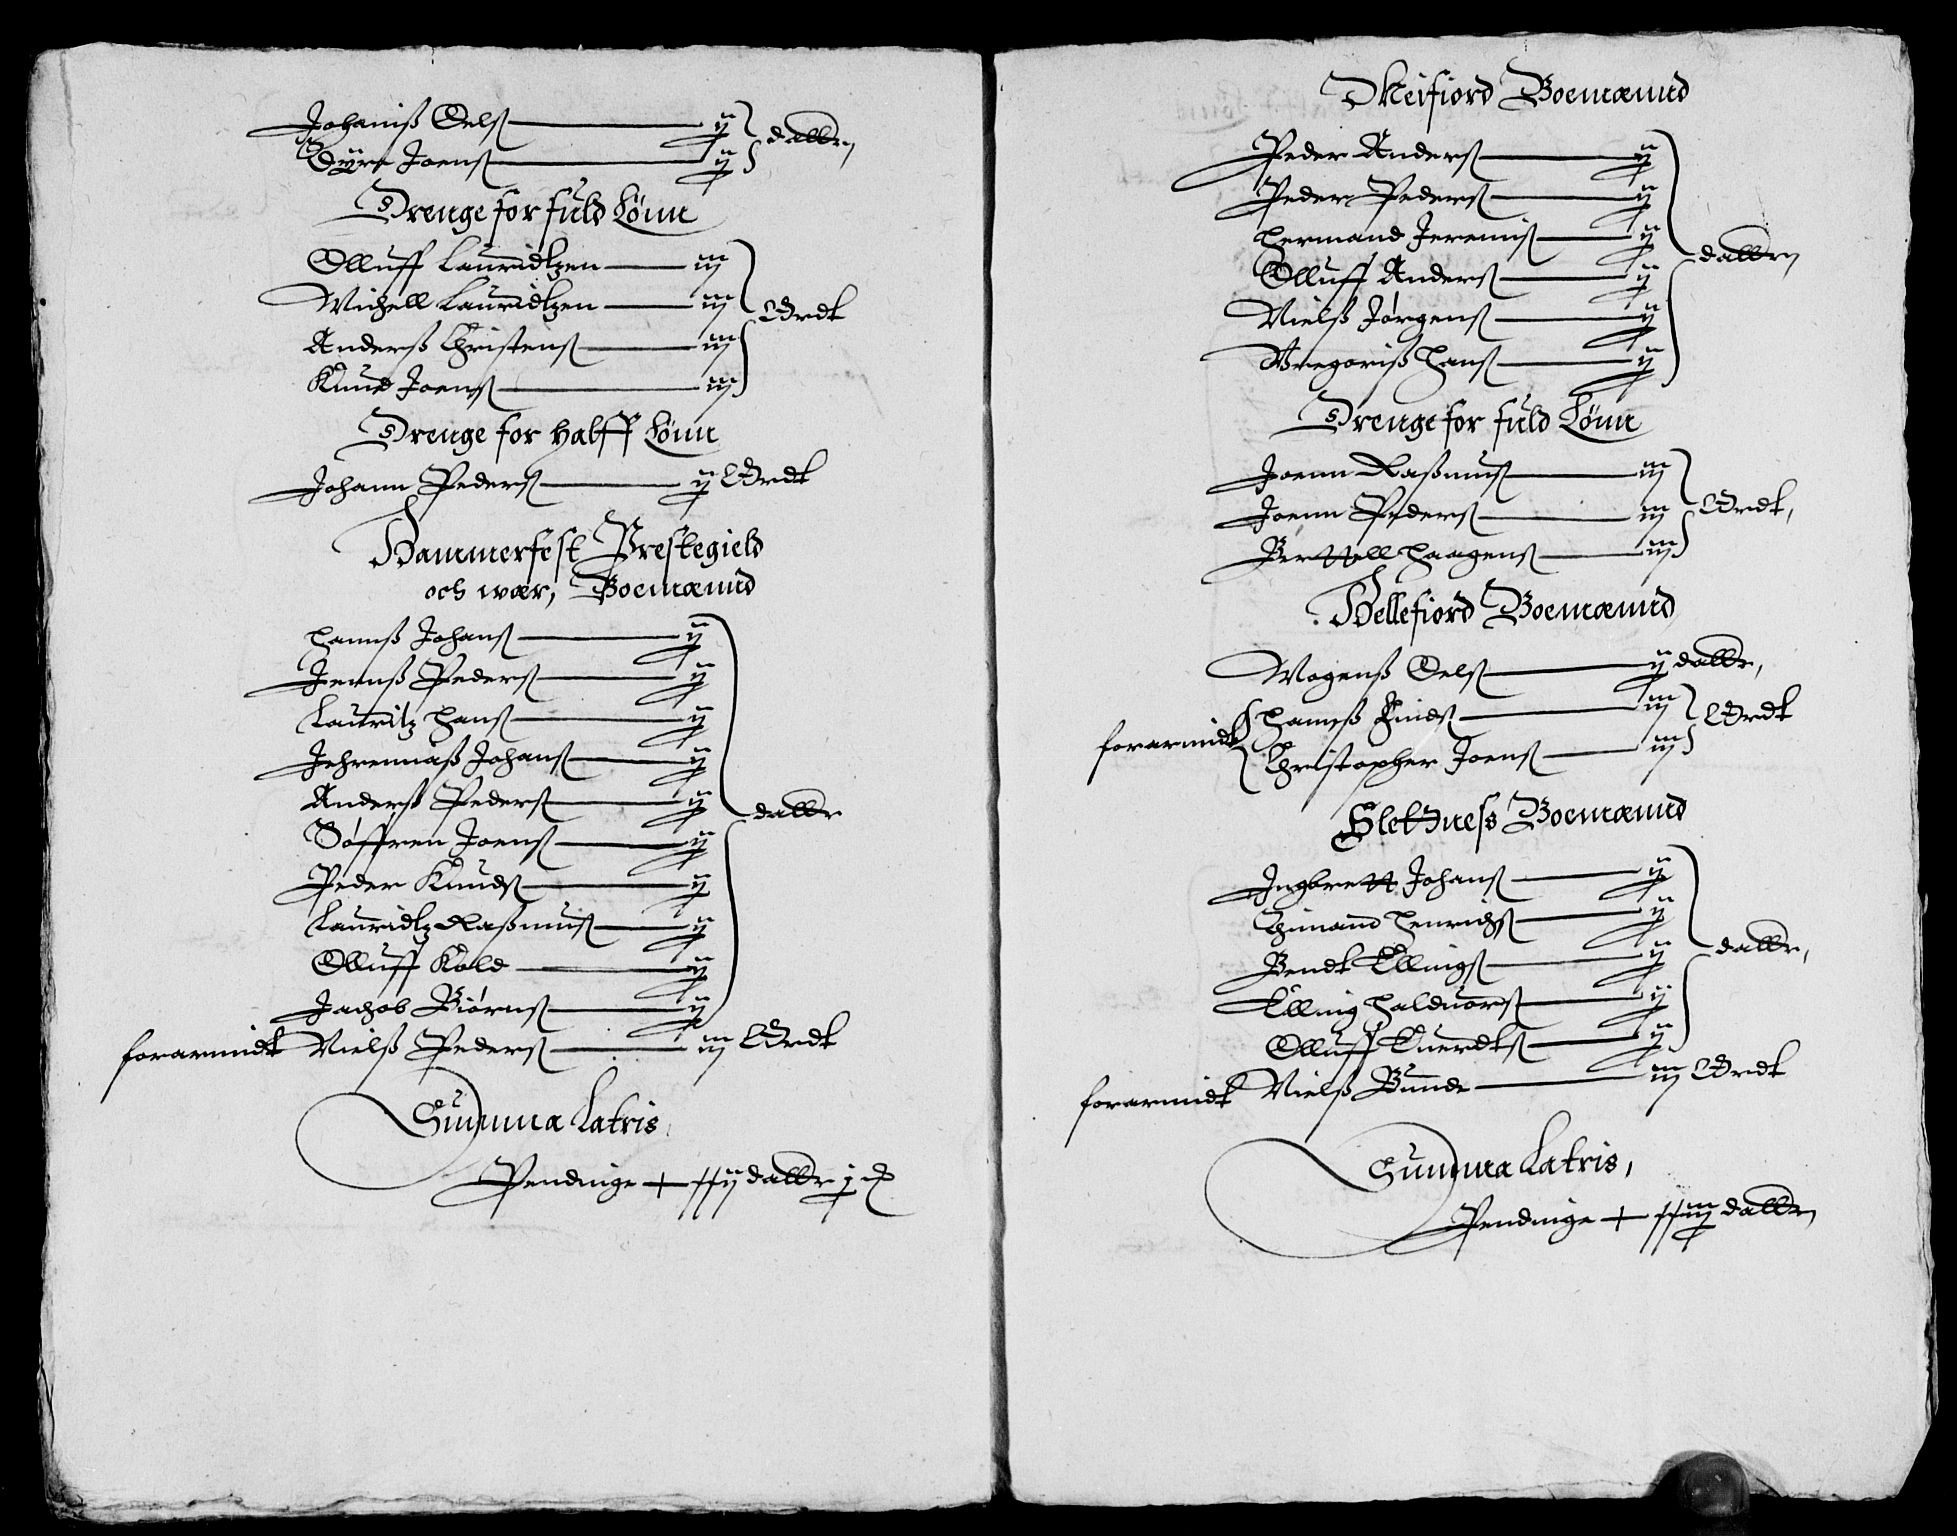 Johanisß Oelsß ij
Gÿre Joensß ij dallr
Drenge for fuld Lönn
Olluff Lauridtzen iij
Michell Lauridtzen iij
Anderß Christensß iij Ortt
Knud Joensß iij
Drenge for halff Lönn
Johann Pedersß ij Ortt
Hammerfest Prestegield
och wær, Boemænnd
Hannß Johansß ij
Jennß Pedersß ij
Lauritz Hansß ij
Jehremiaß Johansß ij
Anderß Pedersß ij dallr
Söffren Joensß ij
Peder Knudsß ij
Lauridtz Raßmusß ij
Olluff Kold ij
Jachob Biörnsß ij
forarmidt Nielß Pedersß iij Ortt
Summa Latris
Pendinge + xxij dallr j
Meifiord Boemænnd
Peder Andersß ij
Peder Pedersß ij
Hermand Jeremisß ij
Olluff Andersß ij dallr
Nielß Jörgensß ij
Gregoriß Hansß ij
Drenge for fuld Lönn
Joenn Raßmusß iij
Joenn Pedersß iij Ortt,
Berttell Haagensß iij
Hellefiord Boemænnd
Mogenß Oelsß ij dallr,
forarmidt Hannß Knudsß iij Ortt
Christopher Joensß iij
Slettness Boemænnd
Ingbrett Johansß ij
Henrichsß ij
Bendt Ellingsß ij dallr,
Elling Haluorsß ij
Olluff Euerdtsß ij
forarmidt Nielß Bunde iij Ortt
Summa Latris,
Pendinge + xxiij dallr